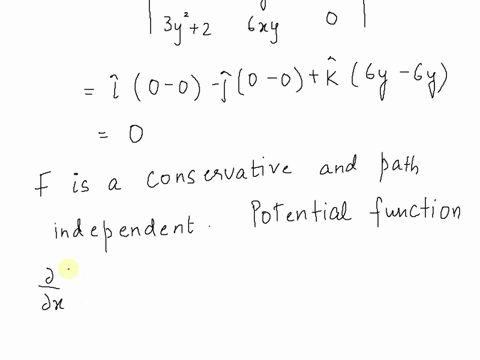 3y²+2 6xy 0
= î (0-0) -ĵ (0-0) + k̂ (6y - 6y)
= 0
F is a conservative and path
independent. Potential function
∂/∂x